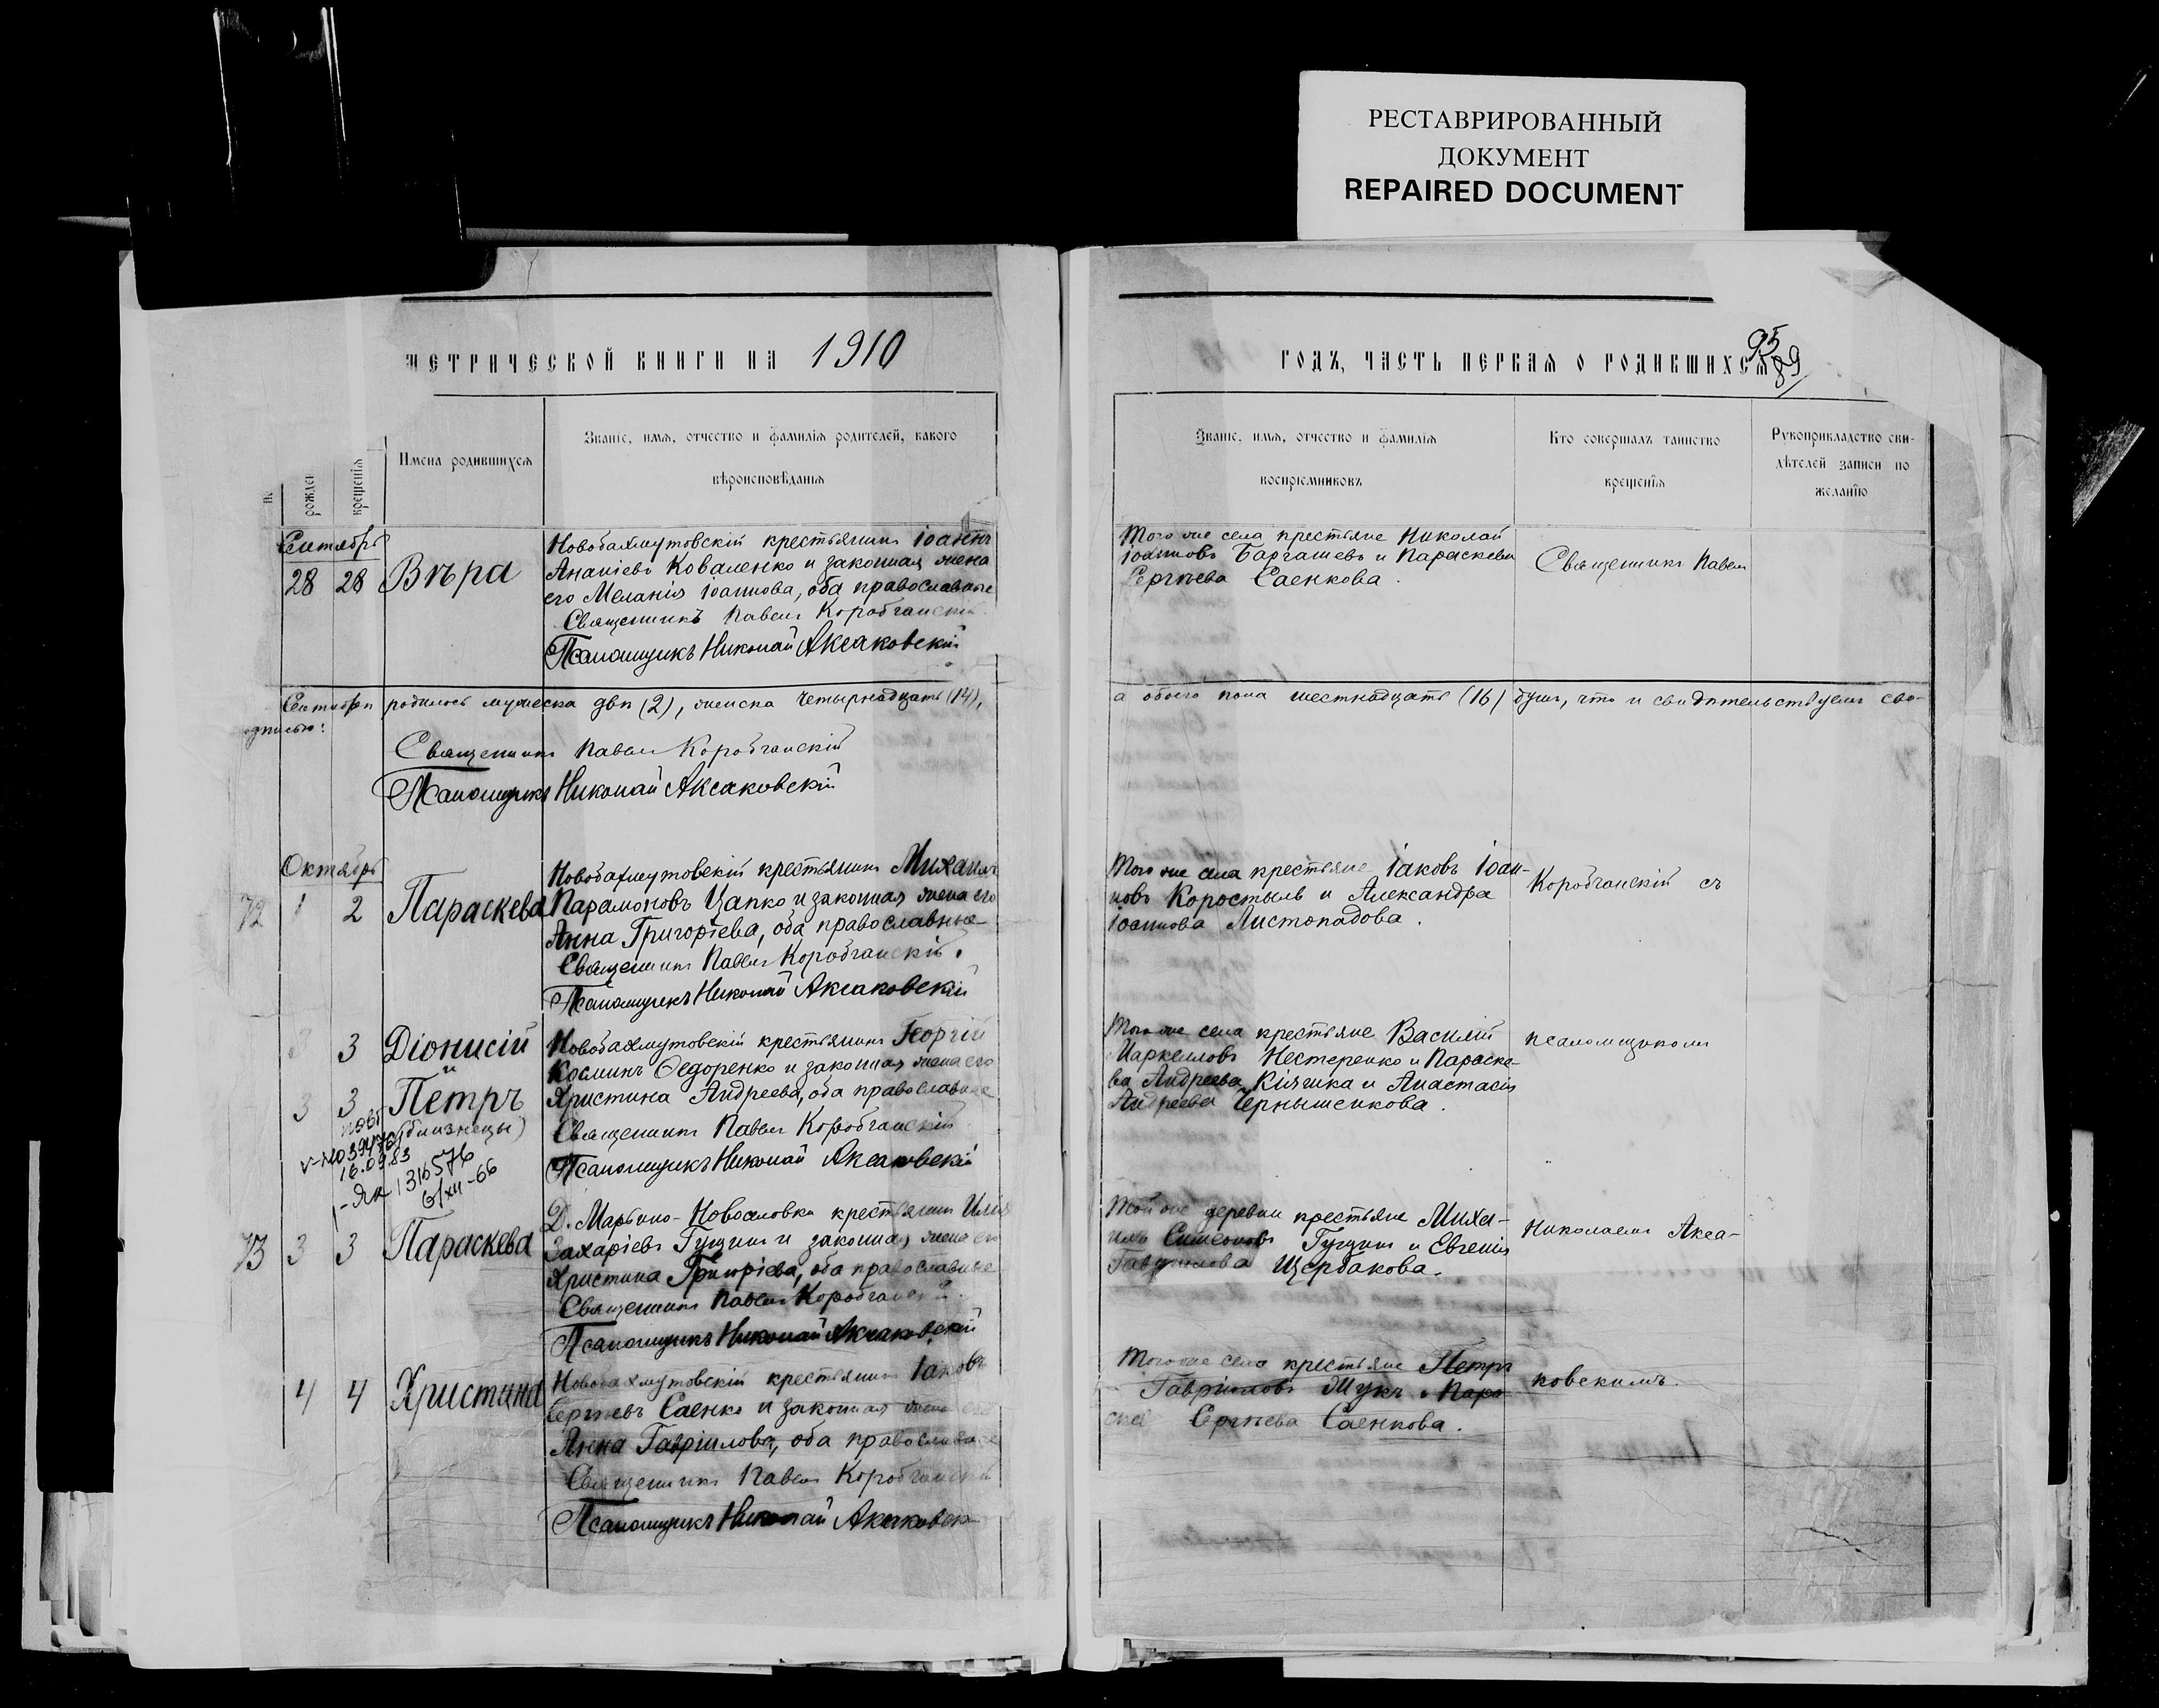 РЕСТАВРИРОВАННЫЙ
ДОКУМЕНТ
REPAIRED DOCUMENT
МЕТРИЧЕСКОЙ КНИГИ НА 1910
Имена родившихся
Званіе, имя, отчество и фамилія родителей, какого
вѣроисповѣданія
рожден
крещенія
Сентябрь
28 28 Вѣра
Новобахмутовскій крестьянинъ Іоаннъ
Ананіевъ Коваленко и законная жена
его Меланія Іоаннова, оба православные
Священникъ Павелъ Коробчанскій
Псаломщикъ Николай Аксаковскій
Сентябрѣ родилось мужеска двѣ (2), женска четырнадцать (14),
одписью:
Священникъ Павелъ Коробчанскій
Псаломщикъ Николай Аксаковскій
Октябрь
72 1 2 Параскева
Новобахмутовскій крестьянинъ Михаилъ
Парамоновъ Цапко и законная жена его
Анна Григоріева, оба православные
Священникъ Павелъ Коробчанскій.
Псаломщикъ Николай Аксаковскій
3 Діонисій
и
3 3 Петръ
(близнецы)
16.09.83
-Яя 1316576
6/XII-66
Новобахмутовскій крестьянинъ Георгій
Косминъ Ѳедоренко и законная жена его
Христина Андреева, оба православные
Священникъ Павелъ Коробчанскій
Псаломщикъ Николай Аксаковскій
73 3 3 Параскева
Д. Марьино-Новоселовка крестьянинъ Илія
Захаріевъ Гущинъ и законная жена его
Христина Григоріева, оба православные
Священникъ Павелъ Коробчанскій.
Псаломщикъ Николай Аксаковскій
4 4 Христина
Новобахмутовскій крестьянинъ Іаковъ
Сергѣевъ Саенко и законная жена его
Анна Гавріилова, оба православные
Священникъ Павелъ Коробчанскій
Псаломщикъ Николай Аксаковскій
ГОДЪ, ЧАСТЬ ПЕРВАЯ О РОДИВШИХСЯ
95
89
Званіе, имя, отчество и фамилія
воспріемниковъ
Кто совершалъ таинство
крещенія
Рукоприкладство сви-
дѣтелей записи по
желанію
Того же села крестьяне Николай
Іоанновъ Баргашевъ и Параскева
Сергѣева Саенкова.
Священникъ Павелъ
а обоего пола шестнадцать (16) душъ, что и свидѣтельствуемъ сво-
Того же села крестьяне Іаковъ Іоан-
новъ Коростыль и Александра
Іоаннова Листопадова.
Коробчанскій съ
Того же села крестьяне Василій
Маркелловъ Нестеренко и Параске-
ва Андреева Кіяшка и Анастасія
Андреева Чернышенкова.
псаломщикомъ
Той же деревни крестьяне Миха-
илъ Симеоновъ Гущинъ и Евгенія
Гавриилова Щербакова.
Николаемъ Акса-
Того же села крестьяне Петръ
Гавріиловъ Жукъ и Пара
Сергѣева Саенкова.
ковскимъ.